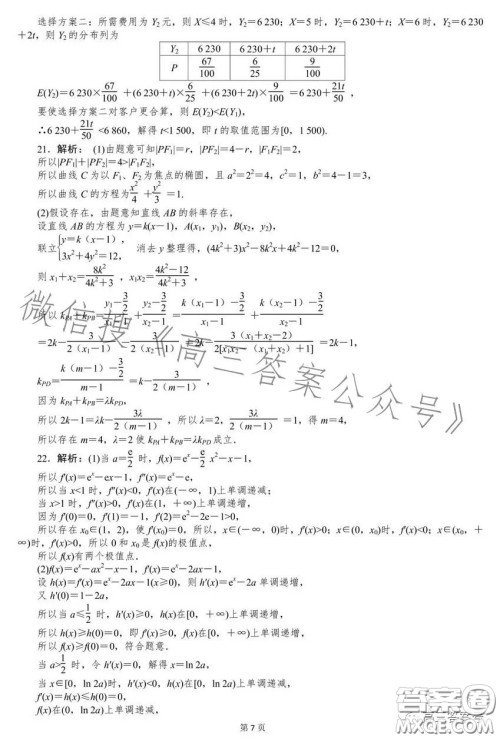 选择方案二：所需费用为 Y2 元，则 X≤4 时，Y2=6 230；X=5 时，Y2=6 230+t；X=6 时，Y2=6 230
+2t，则 Y2 的分布列为
Y2 6 230 6 230+t 6 230+2t
P 67/100 6/25 9/100
E(Y2)=6 230×67/100+(6 230+t)×6/25+(6 230+2t)×9/100=6 230+21t/50，
要使选择方案二对客户更合算，则 E(Y2)<E(Y1)，
∴6 230+21t/50<6 860，解得 t<1 500，即 t 的取值范围为[0，1 500).
21．解析：(1)由题意可知|PF1|=r，|PF2|=4-r，|F1F2|=2，
所以|PF1|+|PF2|=4>|F1F2|，
所以曲线 C 为以 F1、F2 为焦点的椭圆，且 a²=2²=4，c²=1，b²=4-1=3，
所以曲线 C 的方程为x²/4+y²/3=1.
(2)假设存在，由题意知直线 AB 的斜率存在，
设直线 AB 的方程为 y=k(x-1)，A(x1，y1)，B(x2，y2)，
联立{y=k（x-1），3x²+4y²=12， 消去 y 整理得，(4k²+3)x²-8k²x+4k²-12=0，
则 x1+x2=8k²/4k²+3，x1x2=4k²-12/4k²+3，
所以 kPA+kPB=y1-3/2/x1-1+y2-3/2/x2-1=k（x1-1）-3/2/x1-1+k（x2-1）-3/2/x2-1
=2k-3/2（x1-1）-3/2（x2-1）=2k-3（x1+x2-2）/2[x1x2-（x1+x2）+1]=2k-1，
kPD=k（m-1）-3/2/m-1=k-3/2（m-1），
因为 kPA+kPB=λkPD，
所以 2k-1=λk-3λ/2（m-1），所以 λ=2，3λ/2（m-1）=1，得 m=4，
所以存在 m=4，λ=2 使 kPA+kPB=λkPD成立．
22．解析：(1)当 a=e/2时，f(x)=eˣ-e/2x²-x-1，
所以 f′(x)=eˣ-ex-1，f″(x)=eˣ-e，
所以当 x<1 时，f″(x)<0，f′(x)在(-∞，1)上单调递减；
当 x>1 时，f″(x)>0，f′(x)在(1，+∞)上单调递增，
因为 f′(0)=0，f′(1)=-1，f′(2)=e²-2e-1>0，
所以存在 x0∈(1，2)，使 f′(x0)=0，所以，x∈(-∞，0)时，f′(x)>0；x∈(0，x0)时，f′(x)<0；x∈(x0，+
∞)时，f′(x)>0，所以 0 和 x0 是 f(x)的极值点，
所以 f(x)有两个极值点．
(2)f(x)=eˣ-ax²-x-1，f′(x)=eˣ-2ax-1，
设 h(x)=f′(x)=eˣ-2ax-1(x≥0)，则 h′(x)=eˣ-2a 单调递增，
又 h′(0)=1-2a，
所以当 a≤1/2时，h′(x)≥0，h(x)在[0，+∞)上单调递增，
所以 h(x)≥h(0)=0，即 f′(x)≥0，f(x)在[0，+∞)上单调递增，
所以 f(x)≥f(0)=0，符合题意．
当 a>1/2时，令 h′(x)=0，解得 x=ln 2a，
当 x∈[0，ln 2a)时，h′(x)<0，h(x)在[0，ln 2a)上单调递减，
f′(x)=h(x)≤h(0)=0，
f(x)在(0，ln 2a)上单调递减，
第 7 页
微信搜《高三答案公众号》